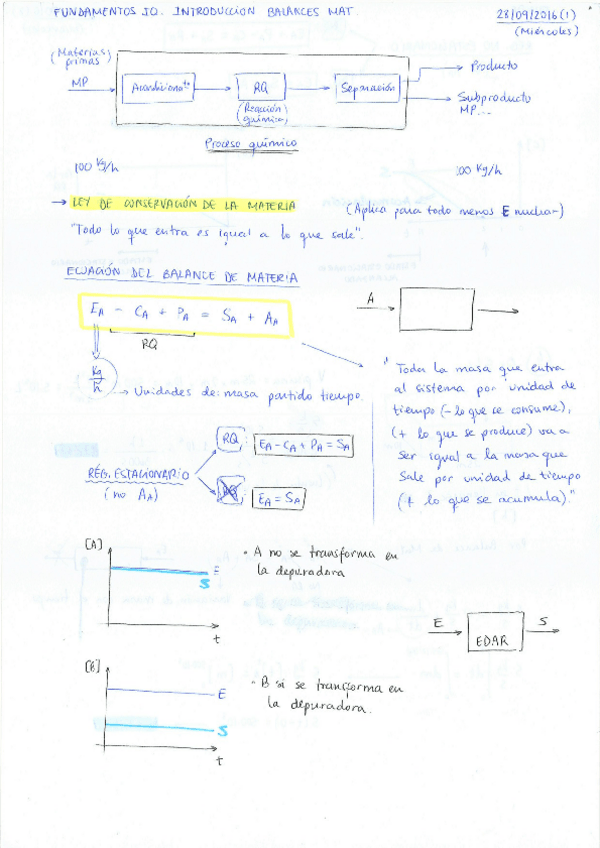 FUNDAMENTOS IQ. INTRODUCCION BALANCES MAT.
28/09/2016 (1)
(Miércoles)
(Materias primas)
MP
Acondicionato
RQ
(Reacción química)
Separación
Producto
Subproducto
MP...
Proceso químico
100 Kg/h
100 Kg/h
→ LEY DE CONSERVACIÓN DE LA MATERIA
(Aplica para todo menos E nuclear)
"Todo lo que entra es igual a lo que sale".
ECUACIÓN DEL BALANCE DE MATERIA
EA - CA + PA = SA + AA
RQ
A
Kg/h
→ Unidades de: masa partido tiempo.
"Toda la masa que entra
al sistema por unidad de
tiempo (- lo que se consume),
(+ lo que se produce) va a
ser igual a la masa que
sale por unidad de tiempo
(+ lo que se acumula)."
RÉG. ESTACIONARIO
(no AA)
RQ
EA - CA + PA = SA
RQ
EA = SA
[A]
E
S
t
• A no se transforma en
la depuradora
E
EDAR
S
[B]
E
S
t
• B si se transforma en
la depuradora.